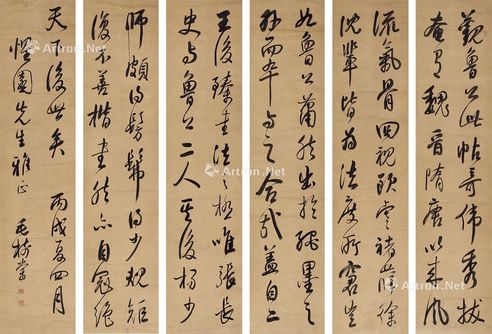 觀魯公此帖奇偉秀拔
奄有魏晉隋唐以來風
流氣骨回視歐虞褚薛徐
沈輩皆為法度所窘豈
如魯公蕭然出於繩墨之
外而卒與之合哉蓋自二
王後臻書法之極唯張長
史與魯公二人其後楊少
師頗得髣髴但少規矩
復不善楷書然亦自冠絕
天下後世矣 丙戌夏四月
惺園先生雅正 毛樹棠
Artron.Net
Artron.Net
Artron.Net
Artron.Net